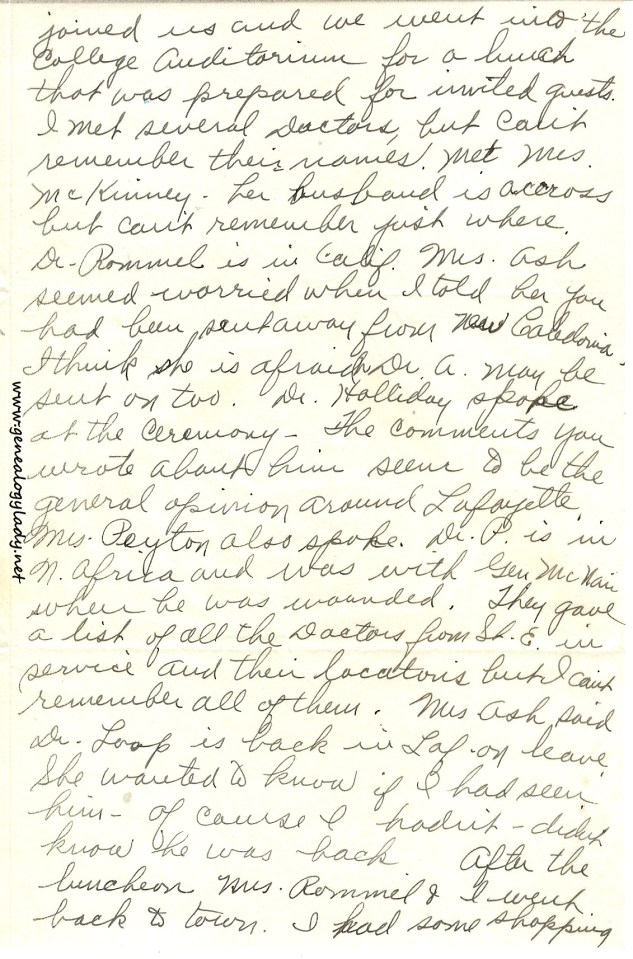 joined us and we went into the
College Auditorium for a lunch
that was prepared for invited guests.
I met several Doctors, but can't
remember their names. Met Mrs.
McKinney - her husband is accross
but can't remember just where.
Dr. Rommel is in Calif. Mrs. Ash
seemed worried when I told her you
had been sent away from New Caledonia.
I think she is afraid Dr. A. may be
sent on too. Dr. Holliday spoke
at the ceremony - The comments you
wrote about him seem to be the
general opinion around Lafayette.
Mrs. Peyton also spoke. Dr. P. is in
N. Africa and was with Gen McNair
when he was wounded. They gave
a list of all the Doctors from St. E. in
service and their locatoris but I can't
remember all of them. Mrs Ash said
Dr. Loop is back in Laf. on leave
She wanted to know if I had seen
him - of course I hadn't - didn't
know he was back After the
luncheon Mrs. Rommel & I went
back to town. I had some shopping
www.genealogylady.net